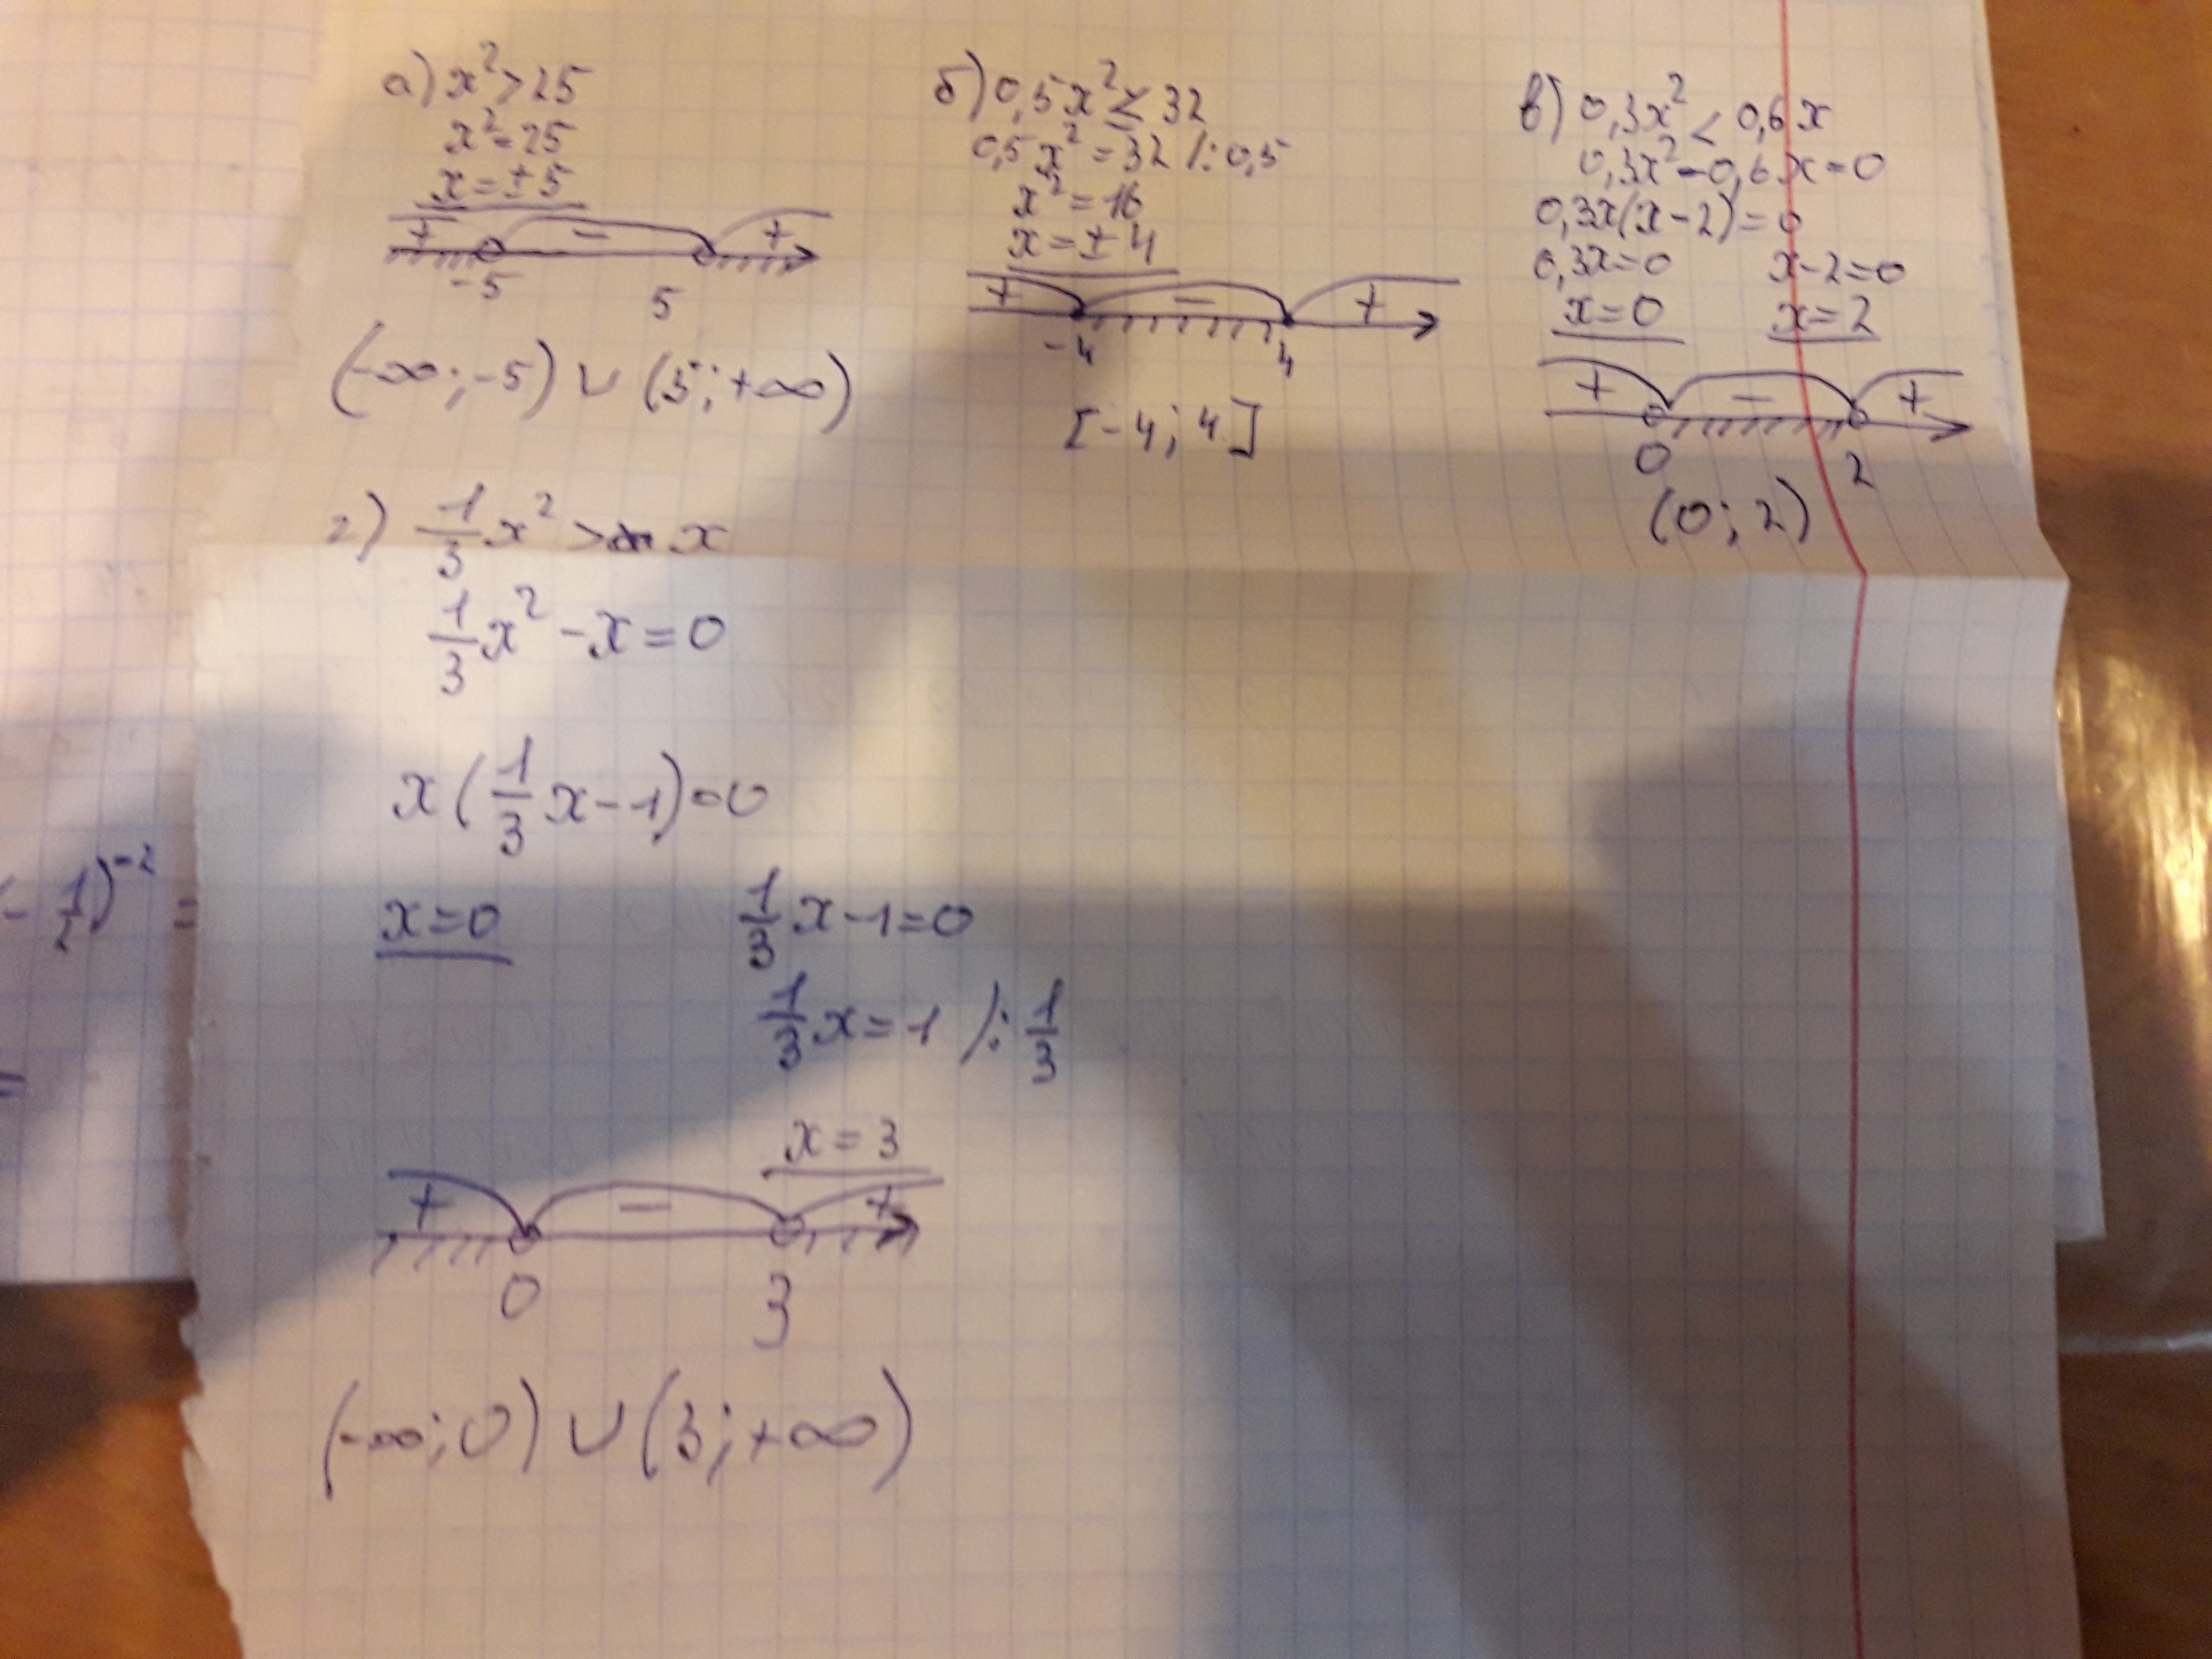 а) x² > 25
x² = 25
x = ±5
+ - +
-5 5
(-∞; -5) ∪ (5; +∞)
б) 0,5x² ≤ 32
0,5x² = 32 /: 0,5
x² = 16
x = ±4
+ - +
-4 4
[-4; 4]
в) 0,3x² < 0,6x
0,3x² - 0,6x = 0
0,3x(x-2) = 0
0,3x=0 x-2=0
x=0 x=2
+ - +
0 2
(0; 2)
г) 1/3 x² > x
1/3 x² - x = 0
x(1/3 x - 1) = 0
x=0 1/3 x - 1 = 0
1/3 x = 1 /: 1/3
x = 3
+ - +
0 3
(-∞; 0) ∪ (3; +∞)
- 1/2)⁻² =
=